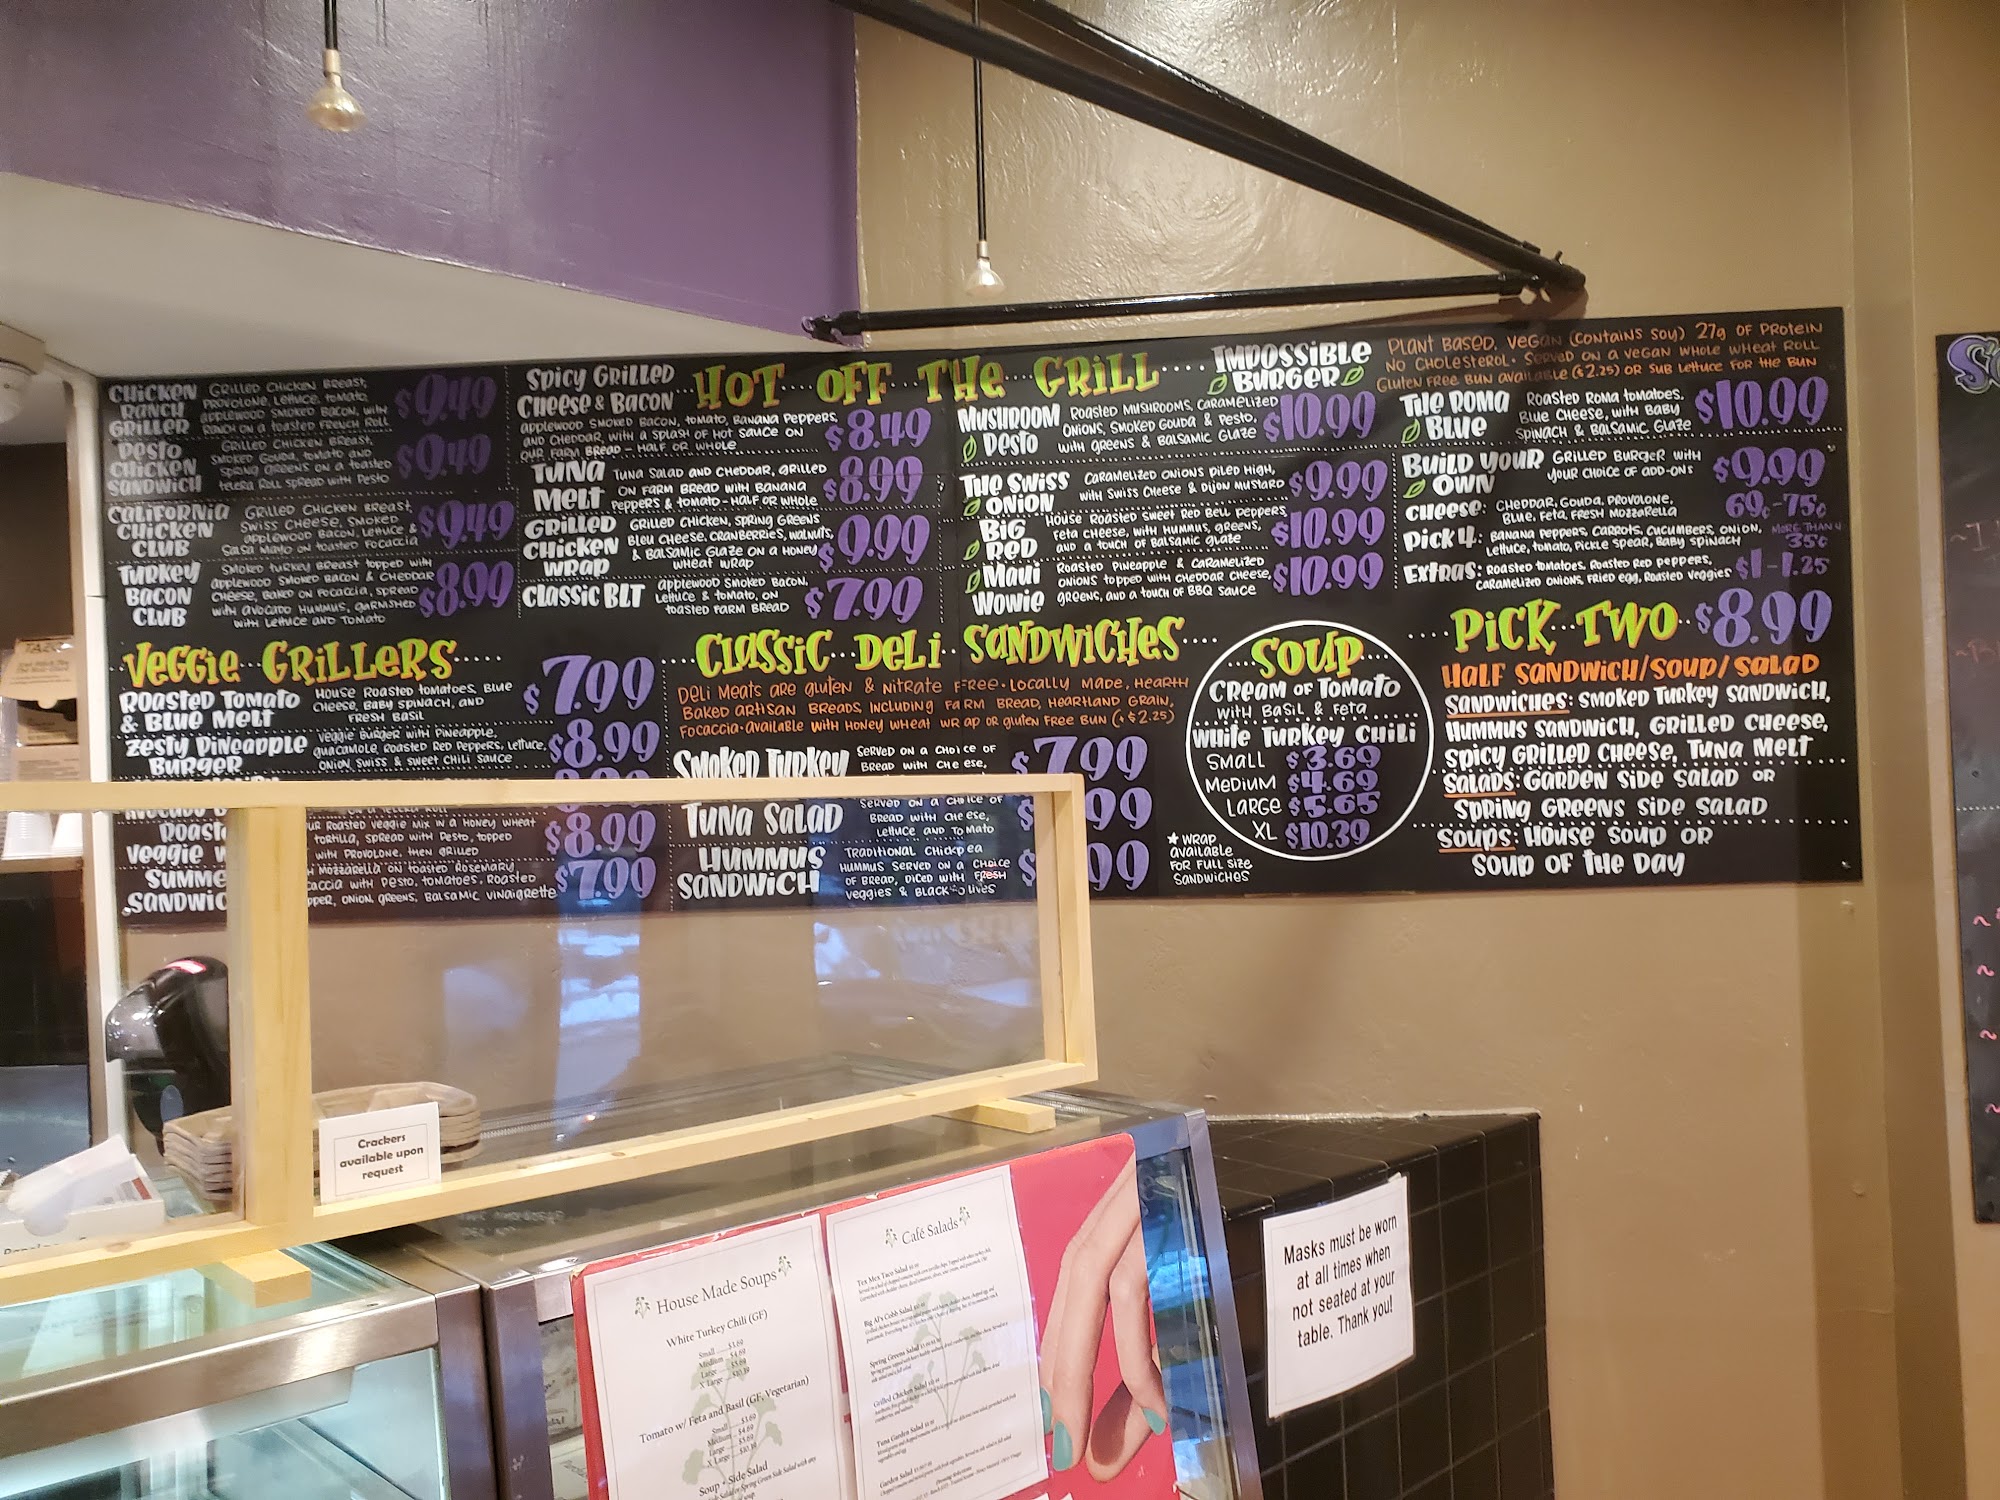 CHICKEN RANCH GRILLER
GRILLED CHICKEN BREAST,
PROVOLONE, LETTUCE, TOMATO,
APPLEWOOD SMOKED BACON, WITH
RANCH ON A TOASTED FRENCH ROLL
$9.49
PESTO CHICKEN SANDWICH
GRILLED CHICKEN BREAST,
SMOKED GOUDA, TOMATO AND
SPRING GREENS ON A TOASTED
TELERA ROLL SPREAD WITH PESTO
$9.49
CALIFORNIA CHICKEN CLUB
GRILLED CHICKEN BREAST,
SWISS CHEESE, SMOKED
APPLEWOOD BACON, LETTUCE &
SALSA MAYO ON TOASTED FOCACCIA
$9.49
TURKEY BACON CLUB
SMOKED TURKEY BREAST TOPPED WITH
APPLEWOOD SMOKED BACON & CHEDDAR
CHEESE, BAKED ON FOCACCIA, SPREAD
WITH AVOCADO HUMMUS, GARNISHED
WITH LETTUCE AND TOMATO
$8.99
HOT OFF THE GRILL
SPICY GRILLED
CHEESE & BACON
APPLEWOOD SMOKED BACON, TOMATO, BANANA PEPPERS,
AND CHEDDAR, WITH A SPLASH OF HOT SAUCE ON
OUR FARM BREAD - HALF OR WHOLE
$8.49
TUNA MELT
TUNA SALAD AND CHEDDAR, GRILLED
ON FARM BREAD WITH BANANA
PEPPERS & TOMATO - HALF OR WHOLE
$8.99
GRILLED CHICKEN WRAP
GRILLED CHICKEN, SPRING GREENS
BLEU CHEESE, CRANBERRIES, WALNUTS,
& BALSAMIC GLAZE ON A HONEY
WHEAT WRAP
$9.99
CLASSIC BLT
APPLEWOOD SMOKED BACON,
LETTUCE & TOMATO, ON
TOASTED FARM BREAD
$7.99
IMPOSSIBLE
BURGER
PLANT BASED, VEGAN (CONTAINS SOY) 27g OF PROTEIN
NO CHOLESTEROL • SERVED ON A VEGAN WHOLE WHEAT ROLL
GLUTEN FREE BUN AVAILABLE ($2.25) OR SUB LETTUCE FOR THE BUN
MUSHROOM PESTO
ROASTED MUSHROOMS, CARAMELIZED
ONIONS, SMOKED GOUDA & PESTO,
WITH GREENS & BALSAMIC GLAZE
$10.99
THE SWISS ONION
CARAMELIZED ONIONS PILED HIGH,
WITH SWISS CHEESE & DIJON MUSTARD
$9.99
BIG RED
HOUSE ROASTED SWEET RED BELL PEPPERS,
FETA CHEESE, WITH HUMMUS, GREENS,
AND A TOUCH OF BALSAMIC GLAZE
$10.99
MAUI WOWIE
ROASTED PINEAPPLE & CARAMELIZED
ONIONS TOPPED WITH CHEDDAR CHEESE,
GREENS, AND A TOUCH OF BBQ SAUCE
$10.99
THE ROMA BLUE
ROASTED ROMA TOMATOES,
BLUE CHEESE, WITH BABY
SPINACH & BALSAMIC GLAZE
$10.99
BUILD YOUR OWN
GRILLED BURGER WITH
YOUR CHOICE OF ADD-ONS
$9.99
CHEESE: CHEDDAR, GOUDA, PROVOLONE,
BLUE, FETA, FRESH MOZZARELLA
69¢-75¢
PICK 4: BANANA PEPPERS, CARROTS, CUCUMBERS, ONION,
LETTUCE, TOMATO, PICKLE SPEAR, BABY SPINACH
MORE THAN 4
35¢
EXTRAS: ROASTED TOMATOES, ROASTED RED PEPPERS,
CARAMELIZED ONIONS, FRIED EGG, ROASTED VEGGIES
$1-1.25
VEGGIE GRILLERS
ROASTED TOMATO
& BLUE MELT
HOUSE ROASTED TOMATOES, BLUE
CHEESE, BABY SPINACH, AND
FRESH BASIL
$7.99
ZESTY PINEAPPLE
BURGER
VEGGIE BURGER WITH PINEAPPLE,
GUACAMOLE, ROASTED RED PEPPERS, LETTUCE,
ONION, SWISS & SWEET CHILI SAUCE
$8.99
AVOCADO
ROAST
VEGGIE W
ROASTED VEGGIE MIX IN A HONEY WHEAT
TORTILLA, SPREAD WITH PESTO, TOPPED
WITH PROVOLONE, THEN GRILLED
$8.99
SUMME
SANDWIC
MOZZARELLA ON TOASTED ROSEMARY
WITH PESTO, TOMATOES, ROASTED
ONION, GREENS, BALSAMIC VINAIGRETTE
$7.99
CLASSIC DELI SANDWICHES
DELI MEATS ARE GLUTEN & NITRATE FREE • LOCALLY MADE, HEARTH
BAKED ARTISAN BREADS, INCLUDING FARM BREAD, HEARTLAND GRAIN,
FOCACCIA • AVAILABLE WITH HONEY WHEAT WRAP OR GLUTEN FREE BUN (+$2.25)
SMOKED TURKEY
SERVED ON A CHOICE OF
BREAD WITH CHEESE,
$7.99
TUNA SALAD
SERVED ON A CHOICE OF
BREAD WITH CHEESE,
LETTUCE AND TOMATO
99
HUMMUS
SANDWICH
TRADITIONAL CHICKPEA
HUMMUS SERVED ON A CHOICE
OF BREAD, PICED WITH FRESH
VEGGIES & BLACK OLIVES
$ 99
★ WRAP
AVAILABLE
FOR FULL SIZE
SANDWICHES
SOUP
CREAM OF TOMATO
WITH BASIL & FETA
WHITE TURKEY CHILI
SMALL $3.69
MEDIUM $4.69
LARGE $5.65
XL $10.39
PICK TWO $8.99
HALF SANDWICH/SOUP/SALAD
SANDWICHES: SMOKED TURKEY SANDWICH,
HUMMUS SANDWICH, GRILLED CHEESE,
SPICY GRILLED CHEESE, TUNA MELT
SALADS: GARDEN SIDE SALAD OR
SPRING GREENS SIDE SALAD
SOUPS: HOUSE SOUP OR
SOUP OF THE DAY
Crackers
available upon
request
House Made Soups
White Turkey Chili (GF)
Small ..... $3.69
Medium ..... $4.69
Large ..... $5.69
X Large ..... $10.39
Tomato w/ Feta and Basil (GF, Vegetarian)
Small ..... $3.69
Medium ..... $4.69
Large ..... $5.69
X Large ..... $10.39
Soup + Side Salad
Café Salads
Tex Mex Taco Salad
Big Al's Cobb Salad
Spring Greens Salad
Grilled Chicken Salad
Tuna Garden Salad
Garden Salad
Masks must be worn
at all times when
not seated at your
table. Thank you!